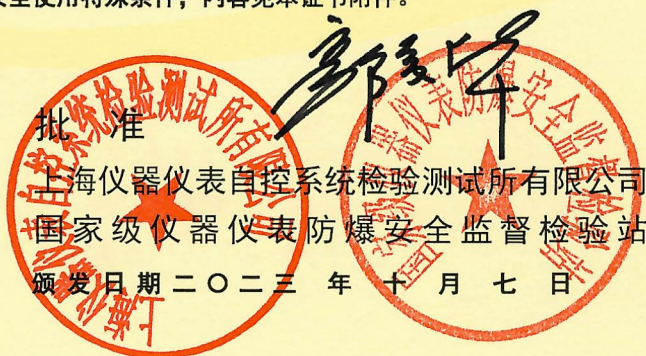 全使用特殊条件，内容见本证书附件。
批 准
上海仪器仪表自控系统检验测试所有限公司
国家级仪器仪表防爆安全监督检验站
颁发日期二〇二三 年 十 月 七 日
上海仪器仪表自控系统检验测试所有限公司
国家级仪器仪表防爆安全监督检验站